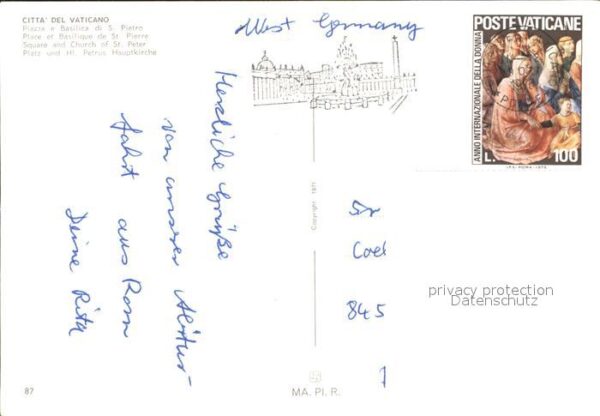 CITTA' DEL VATICANO
Piazza e Basilica di S. Pietro
Place et Basilique de St. Pierre
Square and Church of St. Peter
Platz und Hl. Petrus Hauptkirche
West Germany
POSTE VATICANE
ANNO INTERNAZIONALE DELLA DONNA
L. 100
Herzliche Grüße
von unserer Abitur-
fahrt aus Rom
Deine Rita
Copyright 1975
845
privacy protection
Datenschutz
87
MA. PI. R.